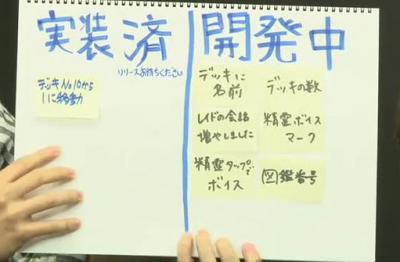 実装済
リリースお待ちください
デッキNo10から
1に移動
開発中
デッキに
名前
デッキの数
レイドの会話
増やしました
精霊ボイス
マーク
精霊タップで
ボイス
図鑑番号